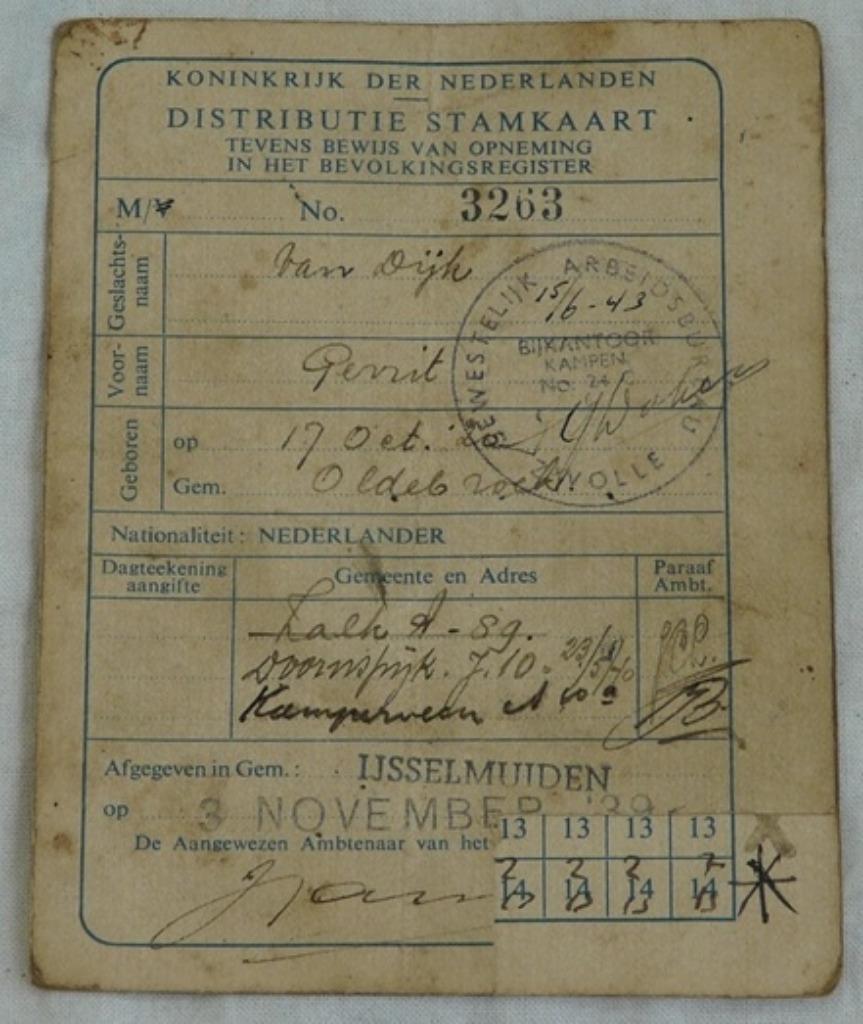 KONINKRIJK DER NEDERLANDEN
DISTRIBUTIE STAMKAART
TEVENS BEWIJS VAN OPNEMING
IN HET BEVOLKINGSREGISTER
M/ No. 3263
Geslachts-
naam
van Dijk
GEWESTELIJK ARBEIDSBUREAU
ZWOLLE
15/6-43
BIJKANTOOR
KAMPEN
No. 24
Voor-
naam
Gerrit
Geboren
op 17 Oct.
Gem. Oldebroek.
Nationaliteit: NEDERLANDER
Dagteekening
aangifte
Gemeente en Adres
Paraaf
Ambt.
Zalk A - 89.
Doornspijk. J. 10.
Kamperveen A 10 a
Afgegeven in Gem.: IJSSELMUIDEN
op 3 NOVEMBER '39
De Aangewezen Ambtenaar van het
13 13 13 13
14 14 14 14